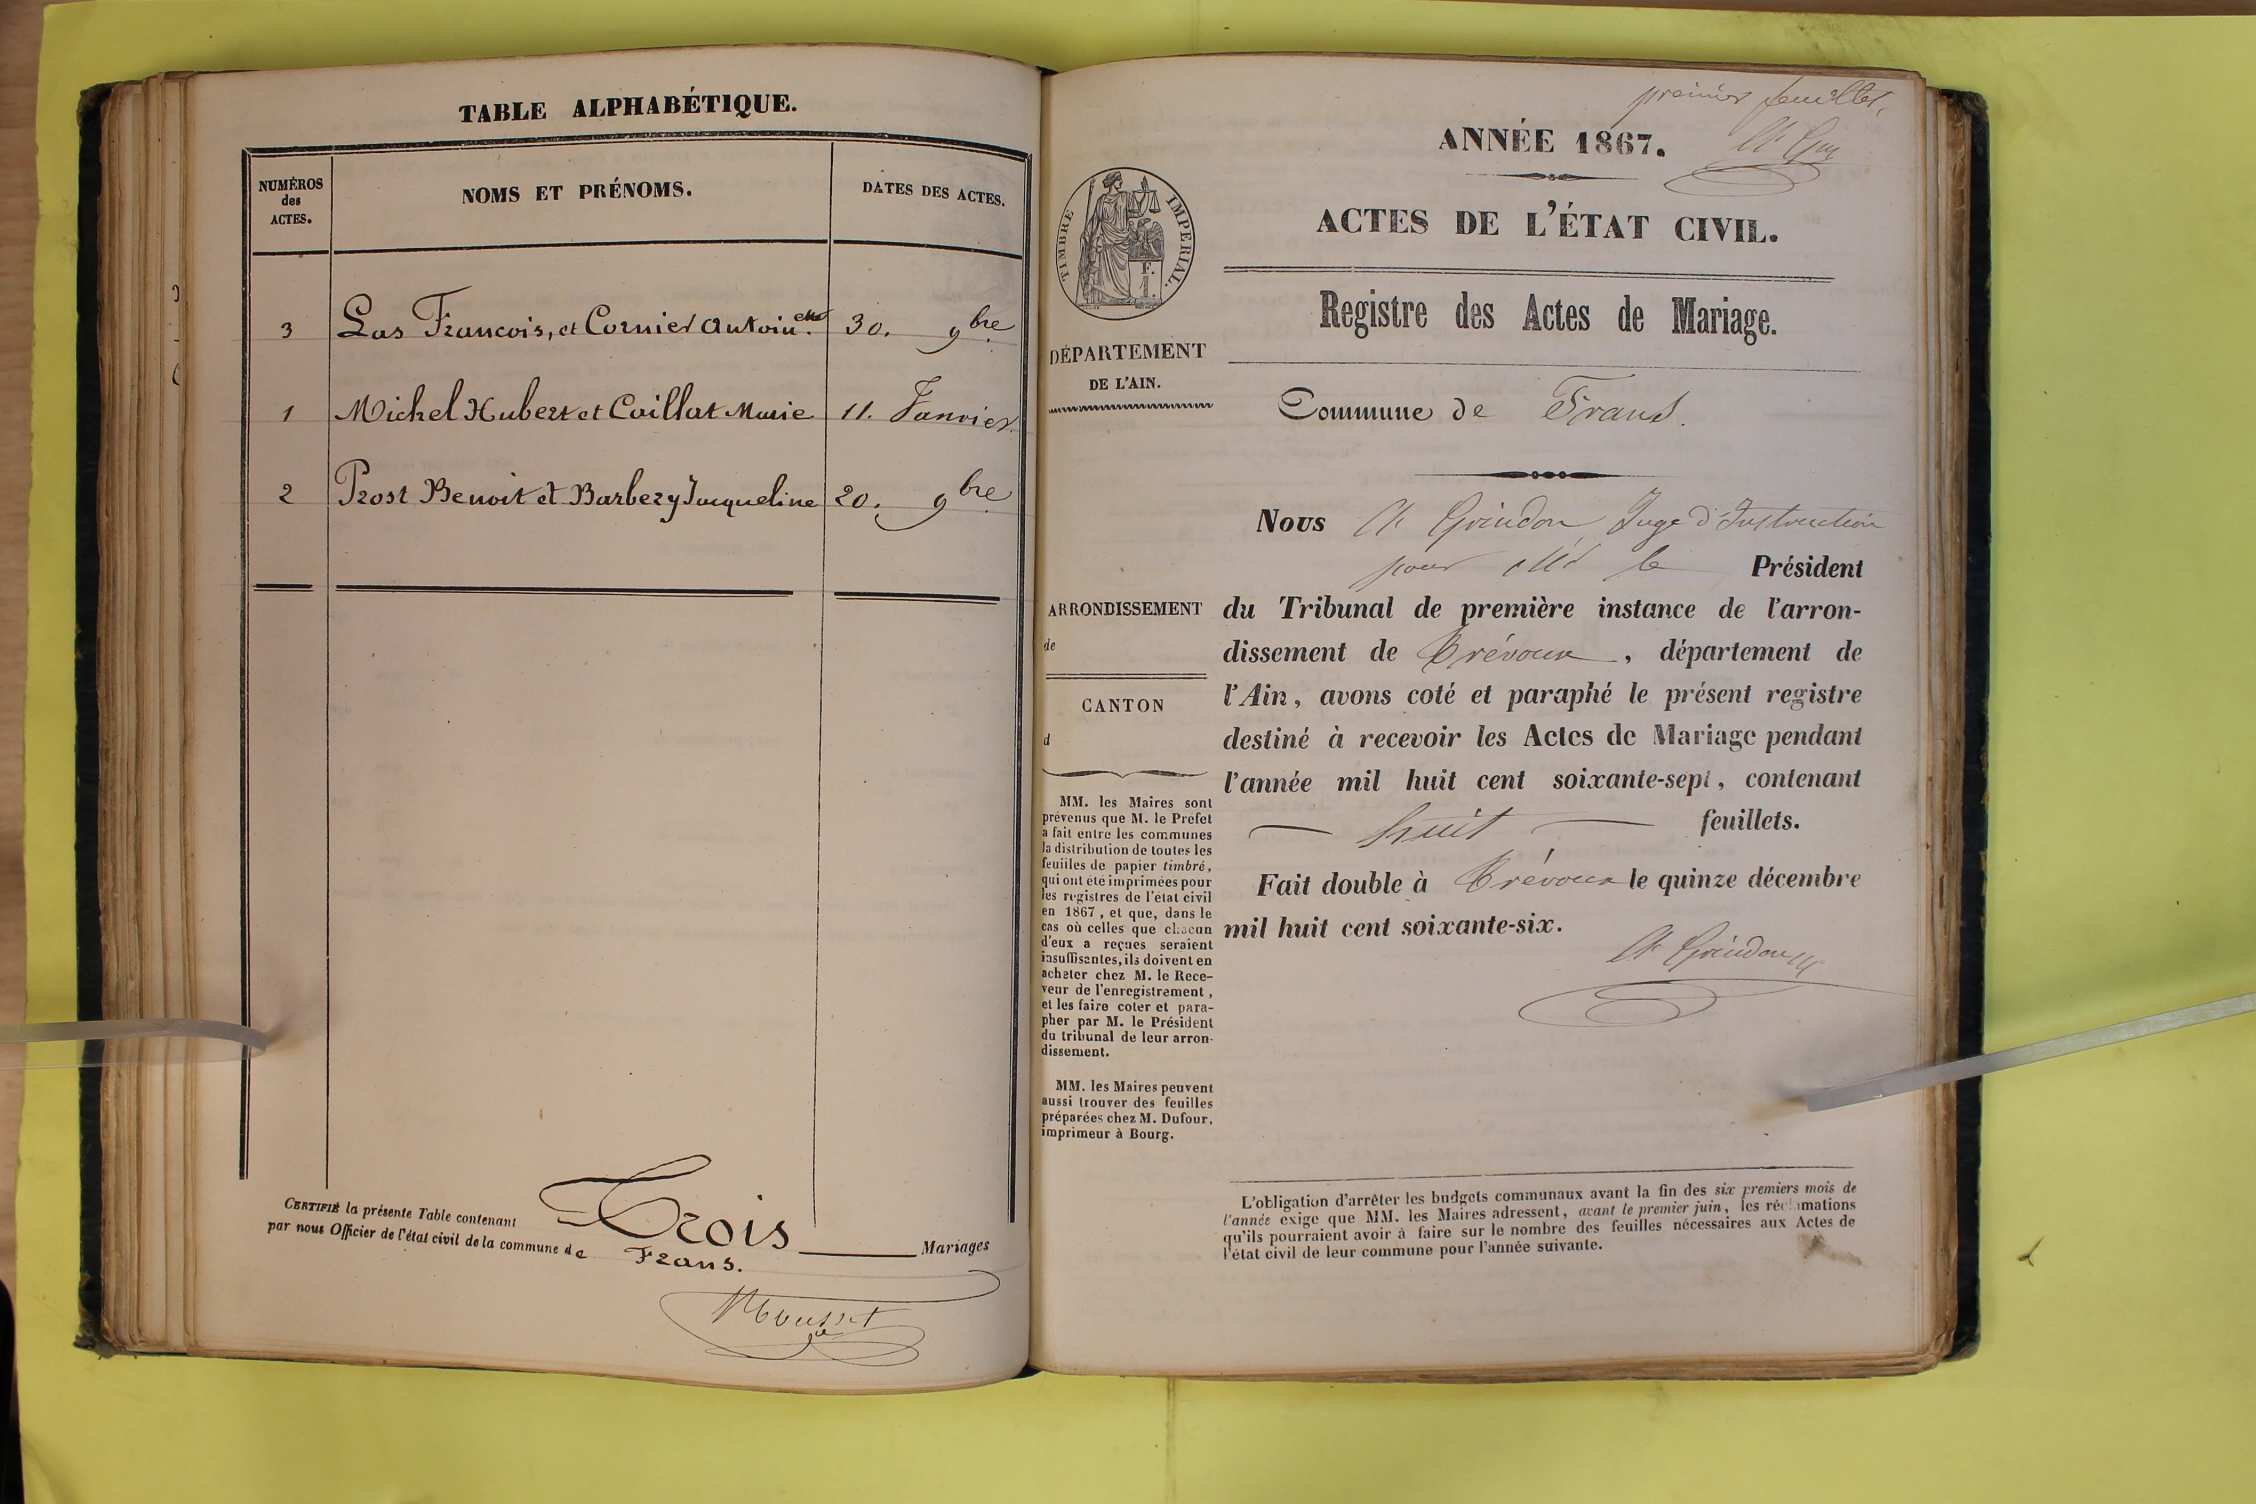 TABLE ALPHABÉTIQUE.
NUMÉROS
des
ACTES.
NOMS ET PRÉNOMS.
DATES DES ACTES.
3 Las Francois, et Cornier Antoinette 30. 9bre
1 Michel Hubert et Caillat Marie 11. Janvier
2 Prost Benoit et Barbery Jacqueline 20. 9bre
CERTIFIÉ la présente Table contenant Trois Mariages
par nous Officier de l'état civil de la commune de Frans.
Mousset
premier feuillet,
ANNÉE 1867.
ACTES DE L'ÉTAT CIVIL.
TIMBRE IMPERIAL.
F.
1.
DÉPARTEMENT
DE L'AIN.
ARRONDISSEMENT
de
CANTON
d
MM. les Maires sont
prévenus que M. le Prefet
a fait entre les communes
la distribution de toutes les
feuilles de papier timbré,
qui ont été imprimées pour
les registres de l'état civil
en 1867, et que, dans le
cas où celles que chacun
d'eux a reçues seraient
insuffisantes, ils doivent en
acheter chez M. le Rece-
veur de l'enregistrement,
et les faire coter et para-
pher par M. le Président
du tribunal de leur arron-
dissement.
MM. les Maires peuvent
aussi trouver des feuilles
préparées chez M. Dufour,
imprimeur à Bourg.
Registre des Actes de Mariage.
Commune de Frans.
Nous Ch Grindon Juge d'Instruction
pour Mr le Président
du Tribunal de première instance de l'arron-
dissement de Trévoux, département de
l'Ain, avons coté et paraphé le présent registre
destiné à recevoir les Actes de Mariage pendant
l'année mil huit cent soixante-sept, contenant
huit feuillets.
Fait double à Trévoux le quinze décembre
mil huit cent soixante-six.
Ch Grindon
L'obligation d'arrêter les budgets communaux avant la fin des six premiers mois de
l'année exige que MM. les Maires adressent, avant le premier juin, les réclamations
qu'ils pourraient avoir à faire sur le nombre des feuilles nécessaires aux Actes de
l'état civil de leur commune pour l'année suivante.